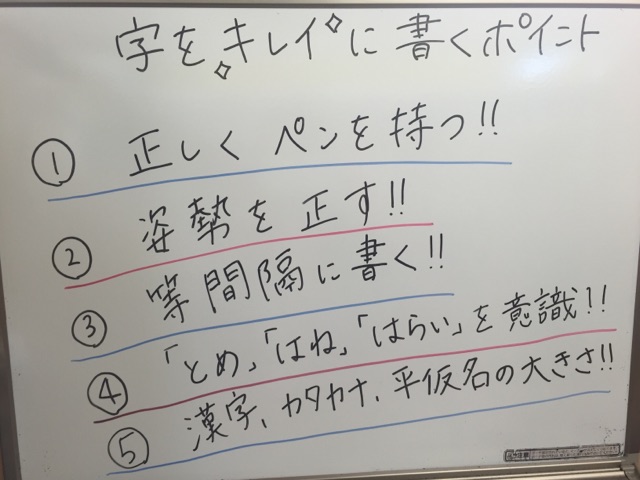 字をキレイに書くポイント
① 正しくペンを持つ!!
② 姿勢を正す!!
③ 等間隔に書く!!
④ 「とめ」「はね」「はらい」を意識!!
⑤ 漢字、カタカナ、平仮名の大きさ!!